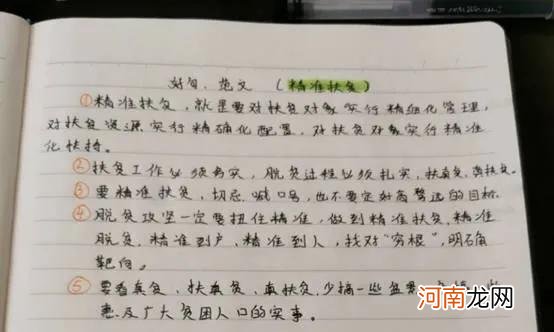 好句、范文 (精准扶贫)
①精准扶贫，就是要对扶贫对象实行精细化管理，
对扶贫资源实行精确化配置，对扶贫对象实行精准
化扶持。
②扶贫工作必须务实，脱贫过程必须扎实，扶真贫，真扶贫。
③要精准扶贫，切忌喊口号，也不要定好高骛远的目标
④脱贫攻坚一定要扭住精准，做到精准扶贫、精准
脱贫，精准到户、精准到人，找对"穷根"，明确
靶向。
⑤要看真贫、扶真贫、真扶贫，少搞一些盆景
惠及广大贫困人口的实事。
河南龙网